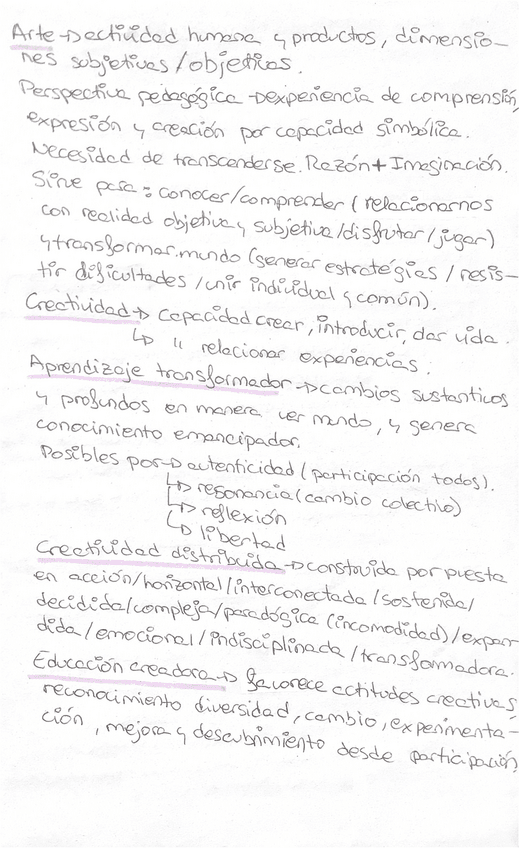 Arte → actividad humana y productos, dimensio-
nes subjetivas/objetivas.
Perspectiva pedagógica → experiencia de comprensión,
expresión y creación por capacidad simbólica.
Necesidad de transcenderse. Razón + Imaginación.
Sirve para: conocer/comprender (relacionarnos
con realidad objetiva y subjetiva/disfrutar/jugar)
y transformar mundo (generar estratégias/resis-
tir dificultades/unir individual y común).
Creatividad → capacidad crear, introducir, dar vida.
↳ " relacionar experiencias.
Aprendizaje transformador → cambios sustantivos
y profundos en manera ver mundo, y genera
conocimiento emancipador.
Posibles por → autenticidad (participación todos).
↳ resonancia (cambio colectivo)
↳ reflexión
↳ libertad
Creatividad distribuida → construida por puesta
en acción/horizontal/interconectada/sostenida/
decidida/compleja/paradógica (incomodidad)/expan-
dida/emocional/indisciplinada/transformadora.
Educación creadora → favorece actitudes creativas,
reconocimiento diversidad, cambio, experimenta-
ción, mejora y descubrimiento desde participación.